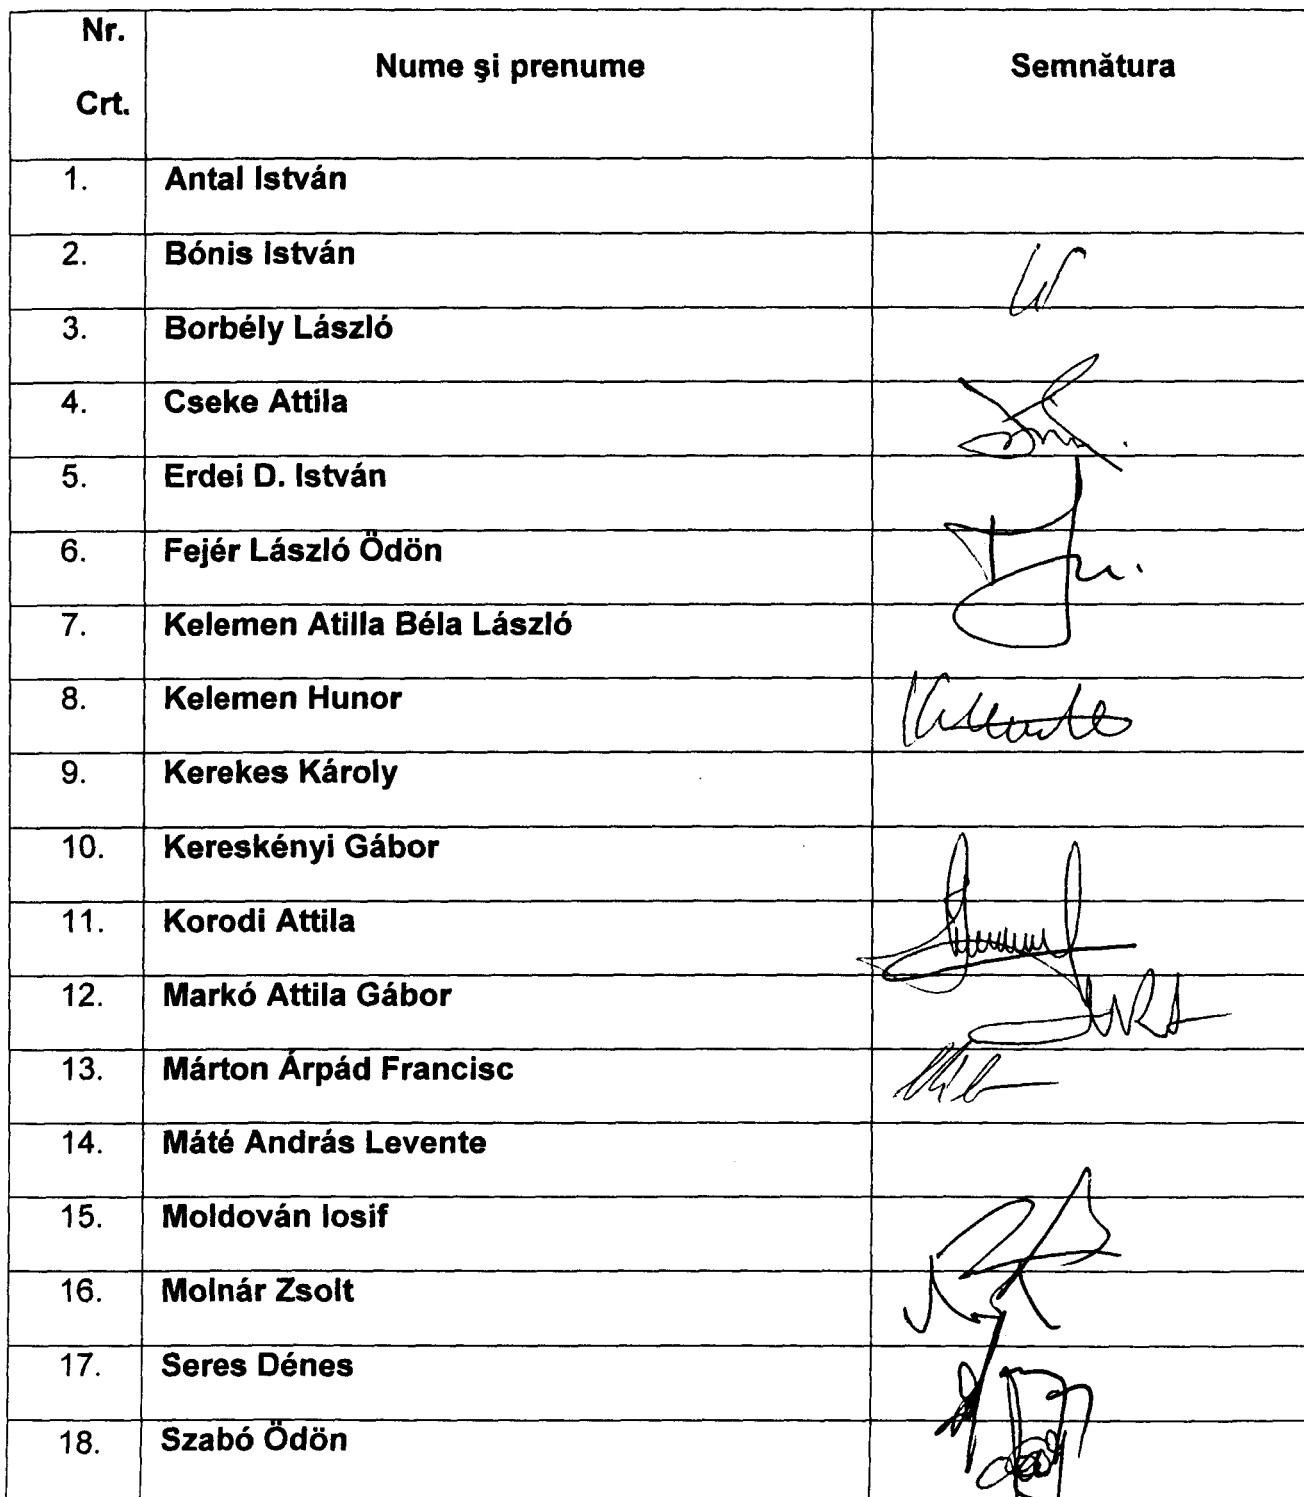 Nr. Crt. Nume şi prenume Semnătura
1. Antal István
2. Bónis István
3. Borbély László
4. Cseke Attila
5. Erdei D. István
6. Fejér László Ödön
7. Kelemen Atilla Béla László
8. Kelemen Hunor
9. Kerekes Károly
10. Kereskényi Gábor
11. Korodi Attila
12. Markó Attila Gábor
13. Márton Árpád Francisc
14. Máté András Levente
15. Moldován Iosif
16. Molnár Zsolt
17. Seres Dénes
18. Szabó Ödön